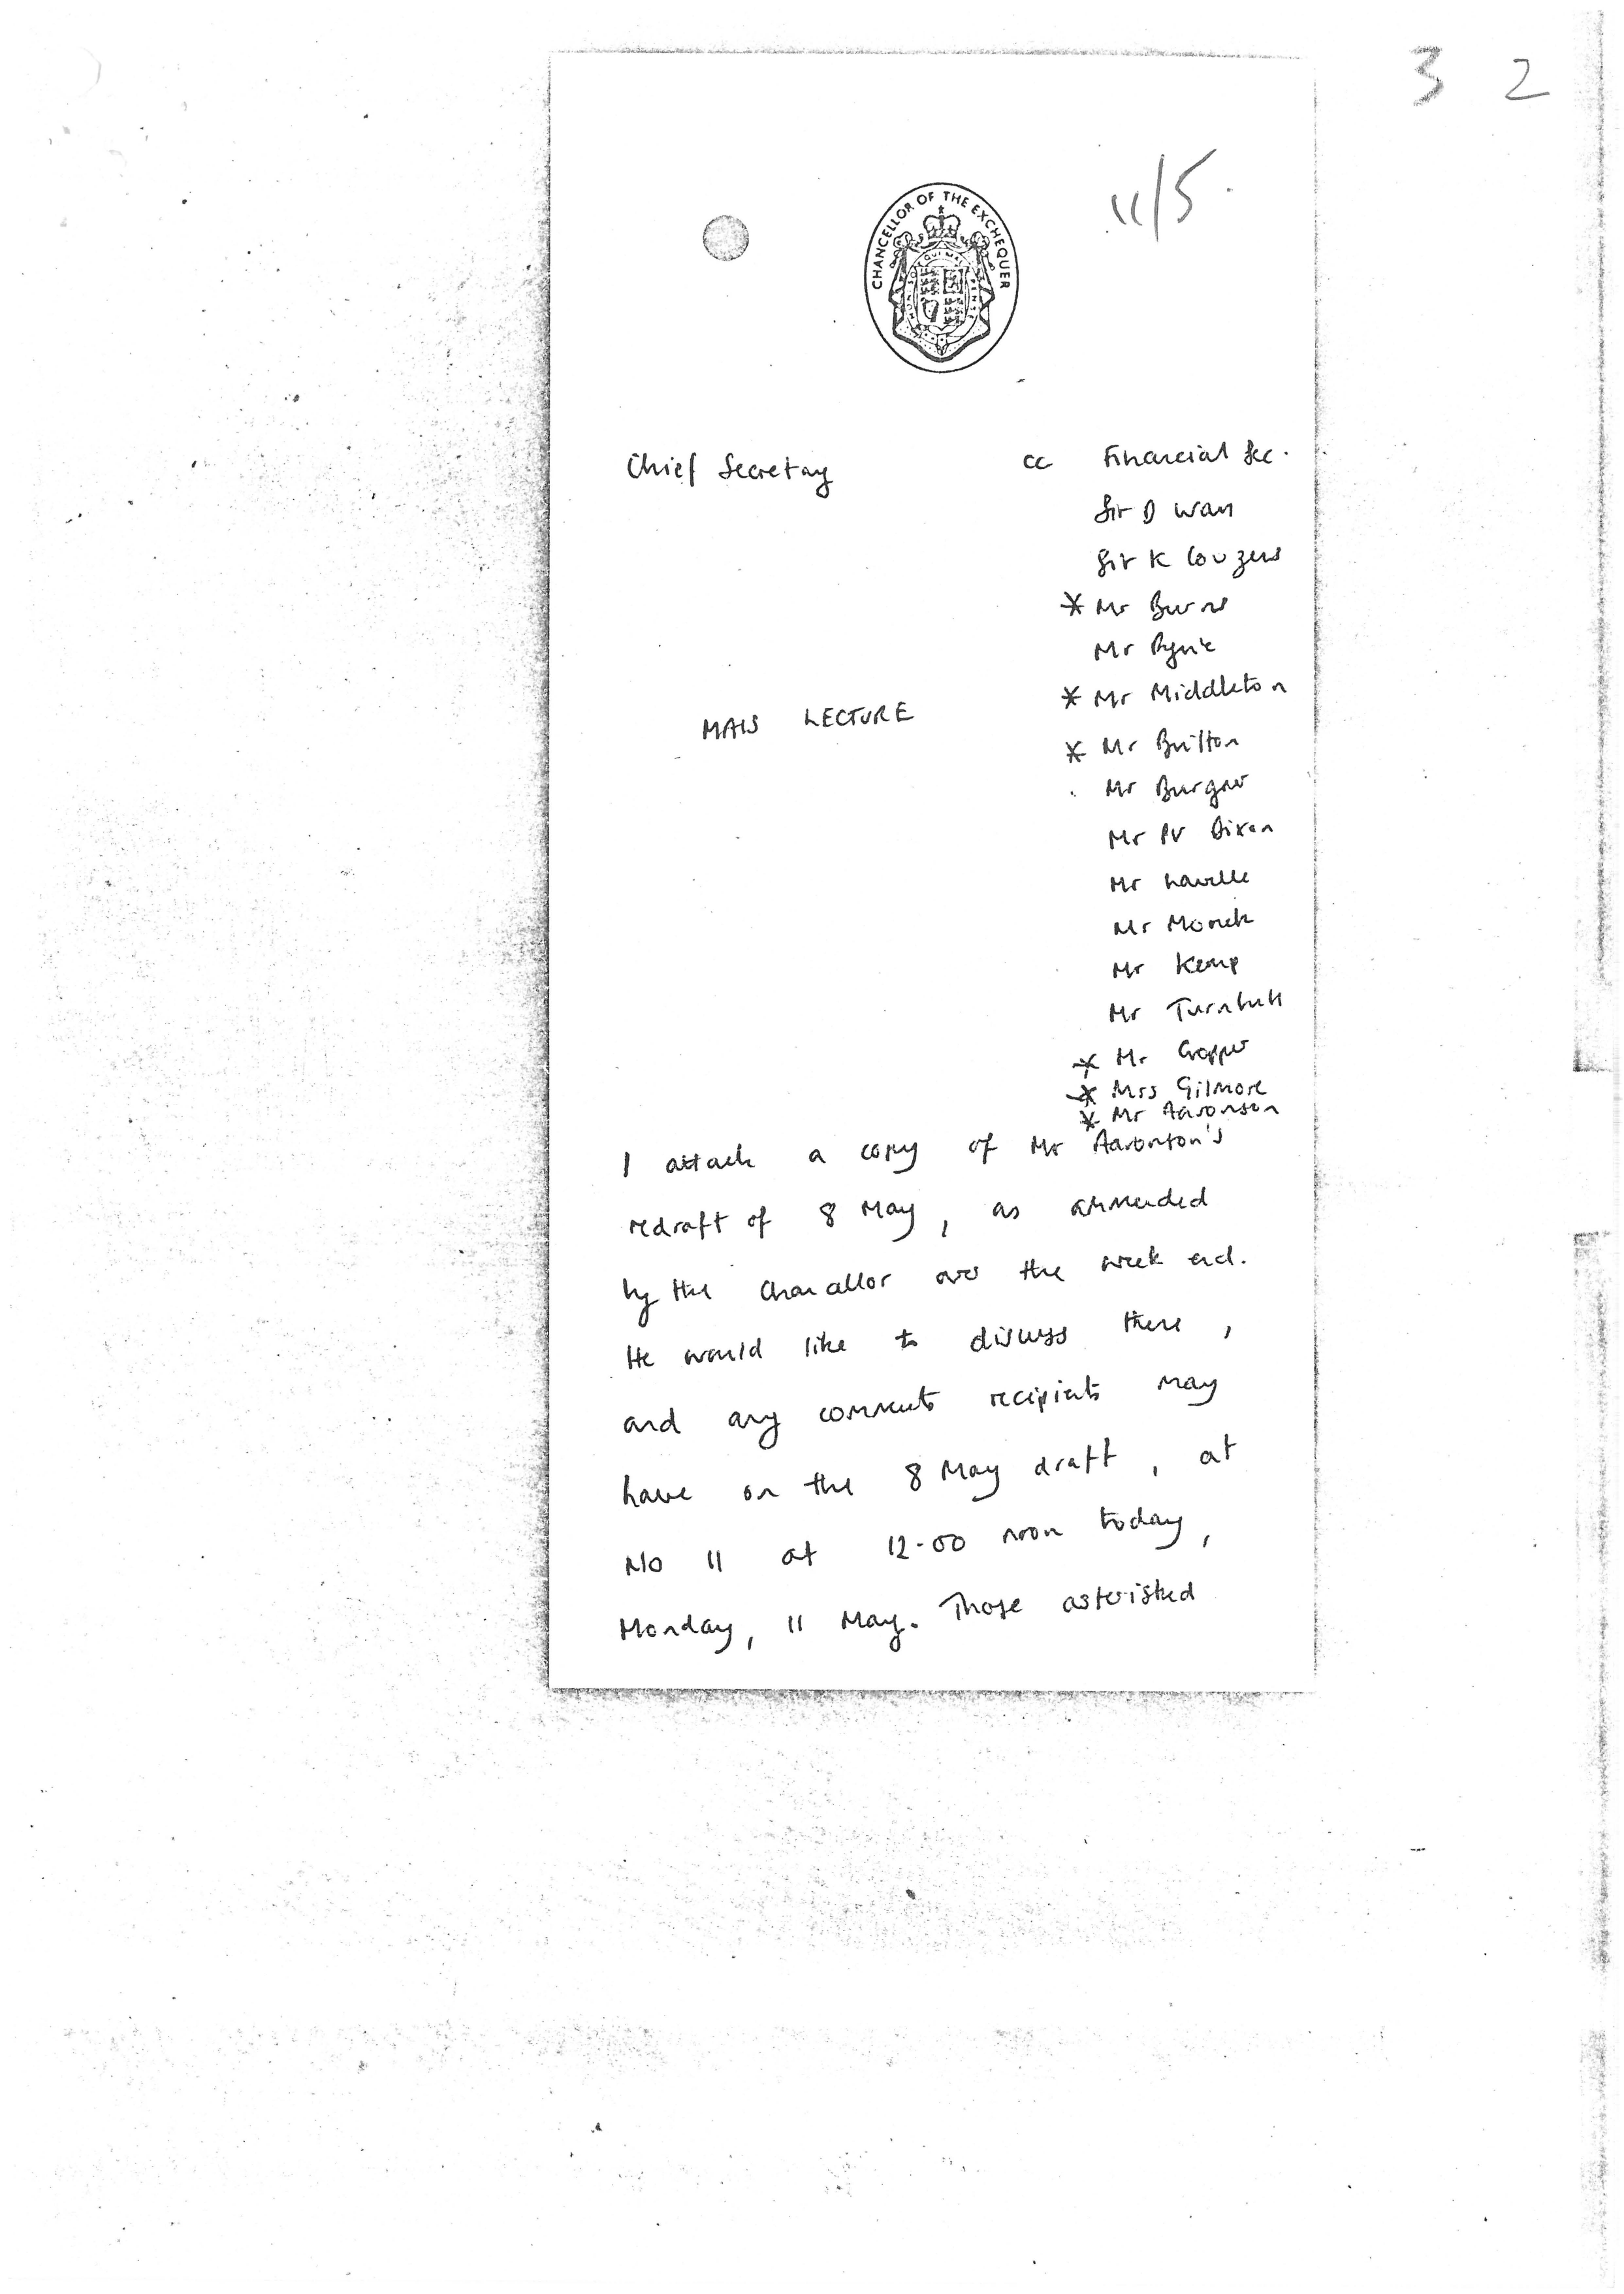 3 2
11/5.
CHANCELLOR OF THE EXCHEQUER
Chief Secretary
cc Financial Sec.
Sir D Wass
Sir K Couzens
* Mr Burns
Mr Ryrie
* Mr Middleton
MAIS LECTURE
* Mr Britton
Mr Burgner
Mr PV Dixon
Mr Lavelle
Mr Monck
Mr Kemp
Mr Turnbull
* Mr Cropper
* Mrs Gilmore
* Mr Aaronson
I attach a copy of Mr Aaronson's
redraft of 8 May, as ammended
by the Chancellor over the week end.
He would like to discuss these,
and any comments recipients may
have on the 8 May draft, at
No 11 at 12.00 noon today,
Monday, 11 May. Those asterisked